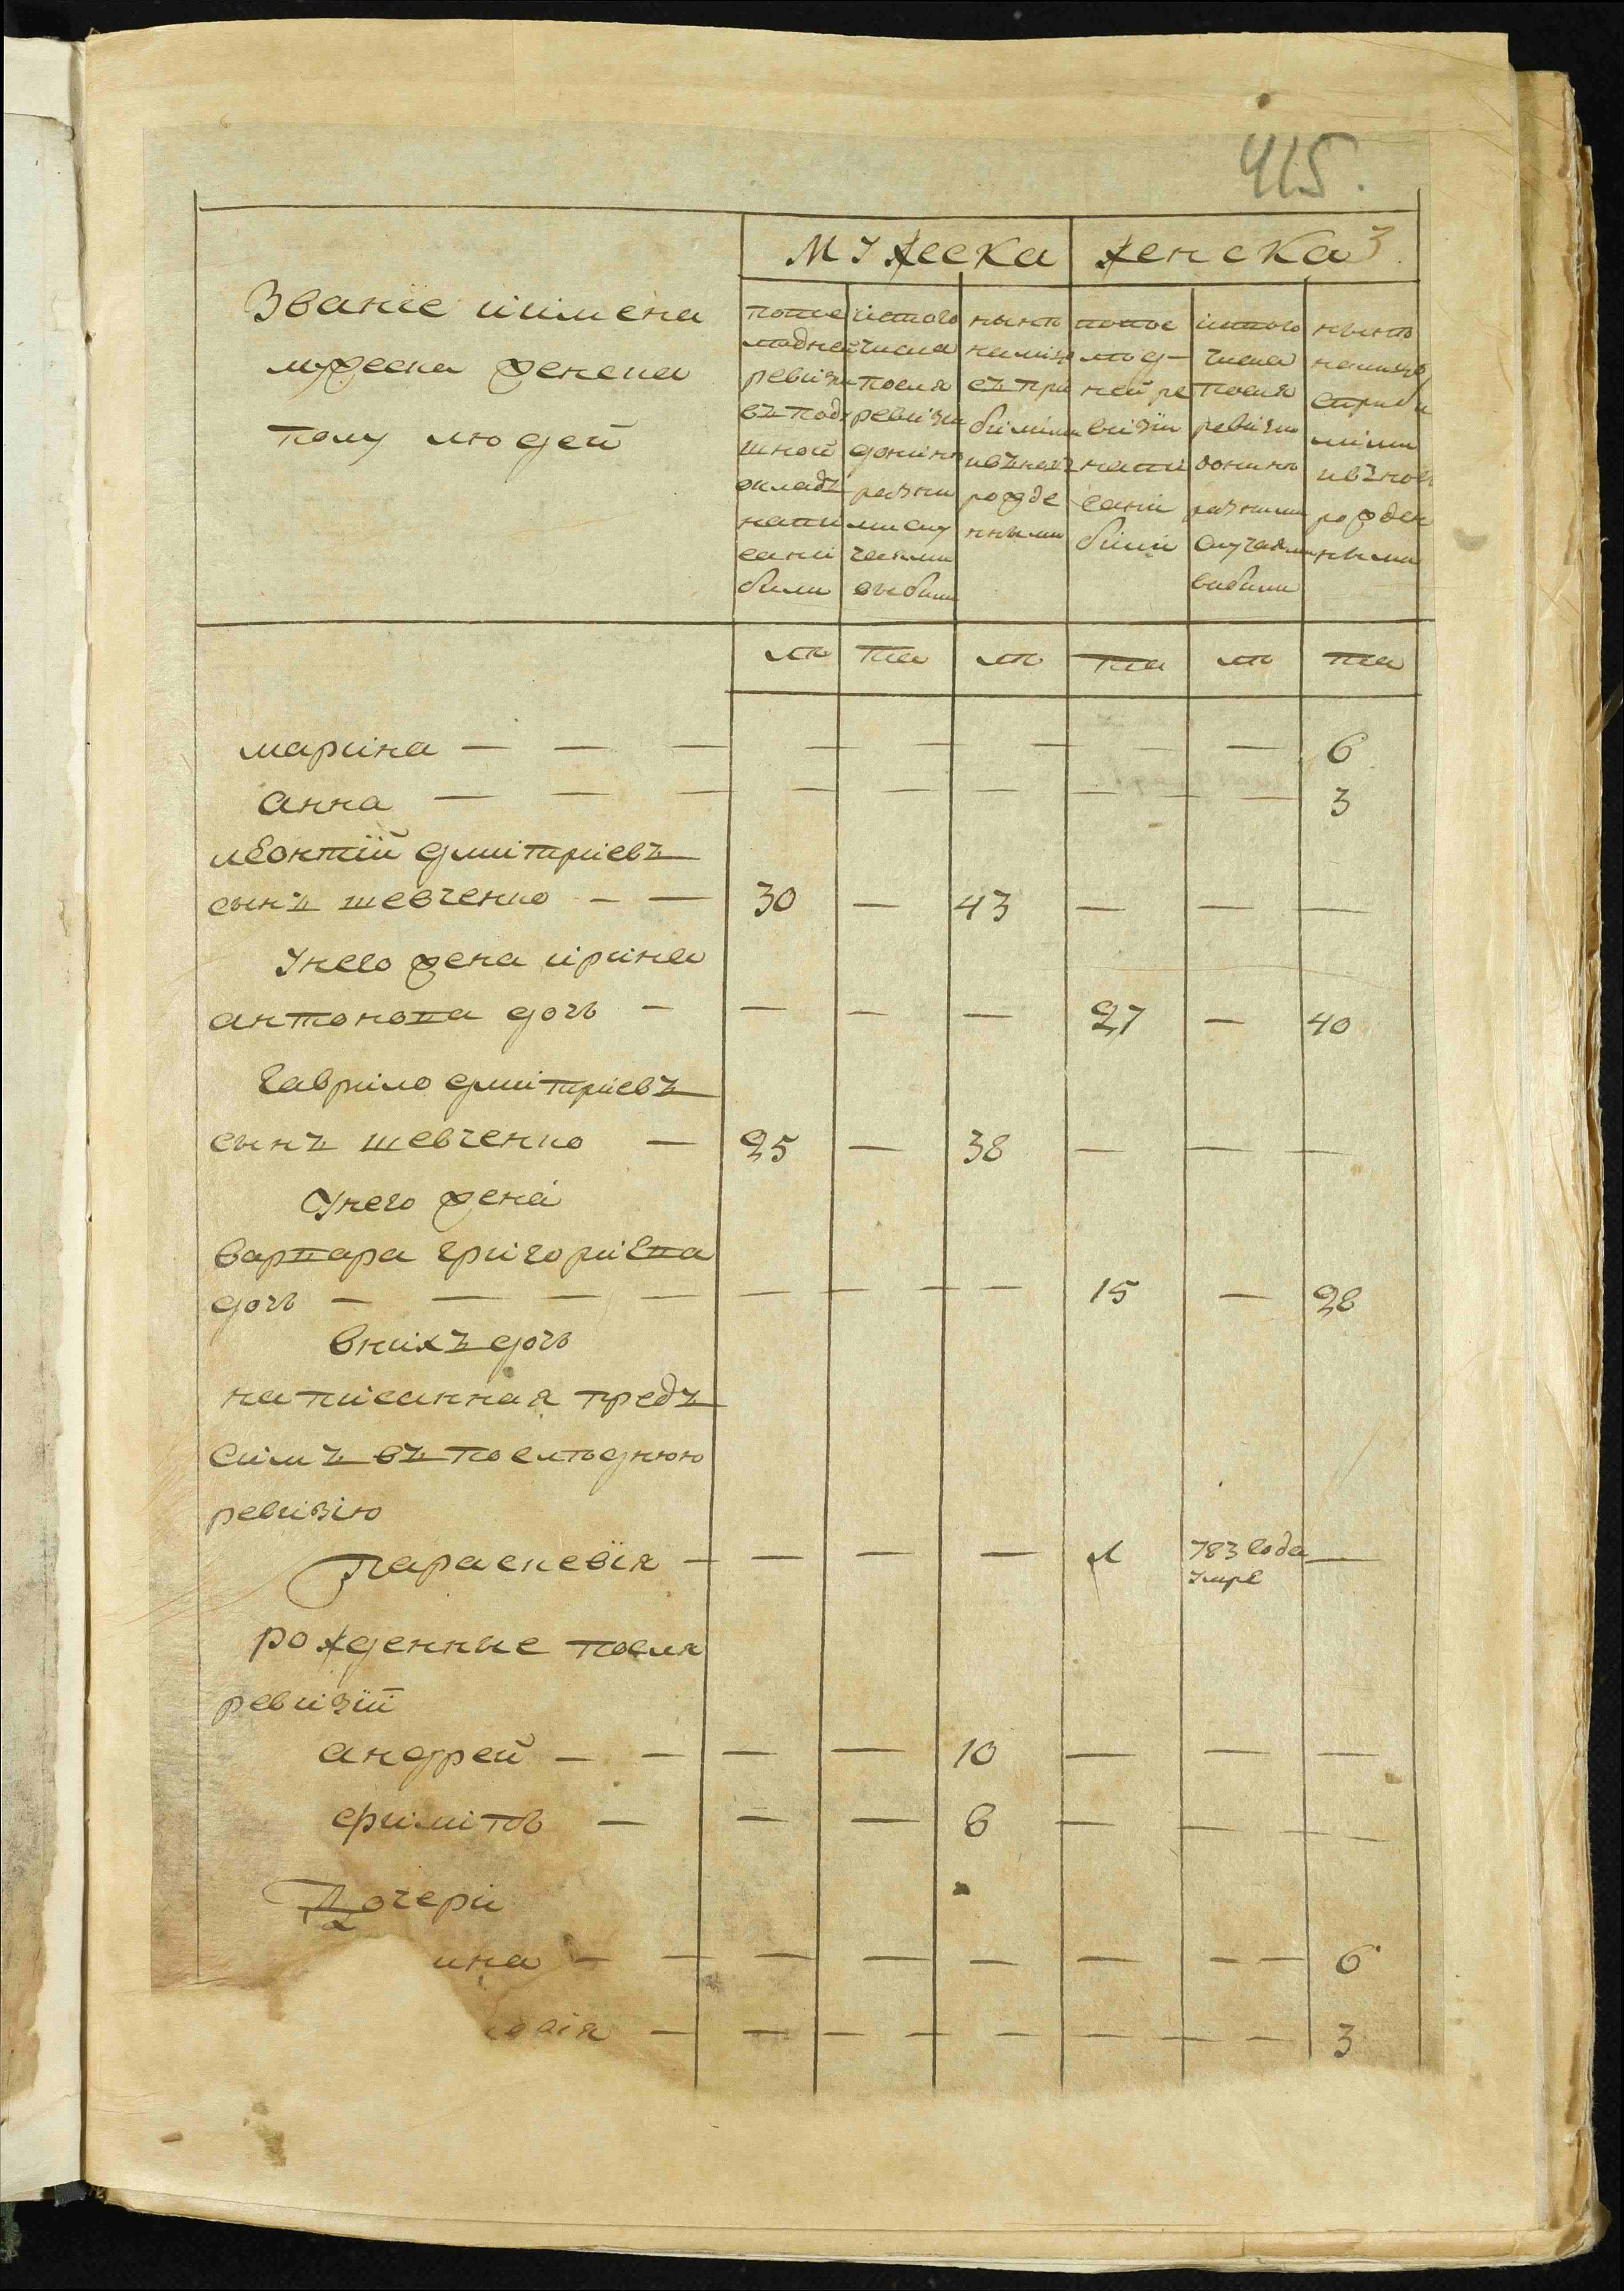 415.
мужеска женска 3
Званїе иимена
мужеска женска
полу людей
попосле
дней
ревизи
въ поду
шной
окладъ
напи
сани
были
истого
числа
посля
ревизи
донинѣ
разни
ми слу
чаями
вибили
нынѣ
налице
съ при
билими
ивъновъ
рожде
нными
попос
лѣд-
ней ре
визїи
напи
сани
били
истого
числа
посля
ревизи
донинѣ
разними
случаями
вибили
нынѣ
налице
сприби
лими
ивъновъ
рожден
ными
лѣ та лѣ та лѣ та
марина — — — — — — — — 6
анна — — — — — — — — — 3
леонтїй дмитриевъ
сынъ шевченко — — 30 — 43 — — —
Унего жена ирина
антонова дочь — — — — 27 — 40
гаврило дмитриевъ
сынъ шевченко — 25 — 38 — — —
Унего жена
варвара григориева
дочь — — — — — — — — 15 — 28
внихъ дочь
написанная предъ
симъ въ последнюю
ревизию
Параскевїя — — — — 783 года —
умре
рожденные посля
ревизїи
андрей — — — — 10 — — —
филипъ — — — 8 — — — —
Дочери
2
ина — — — — — — — — 6
овия — — — — — — — — 3